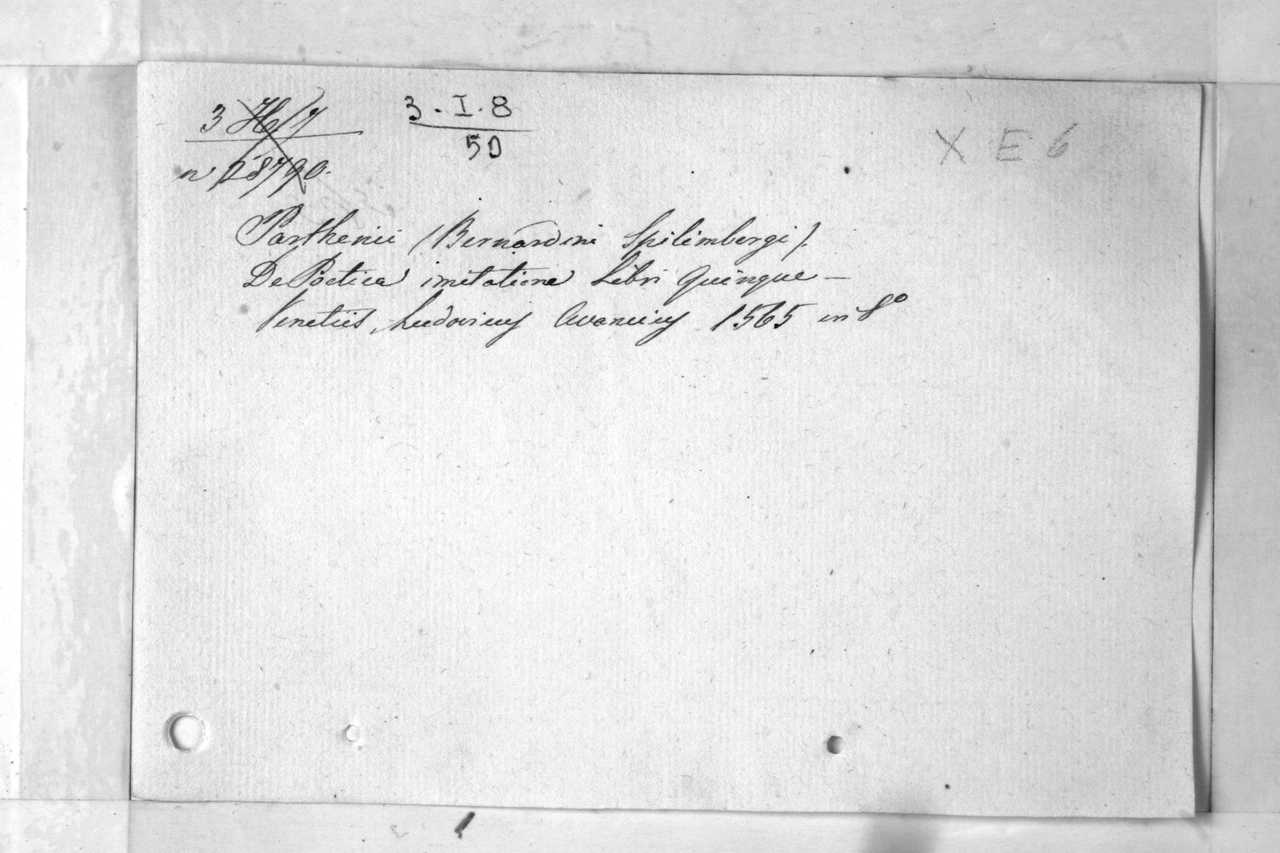 3 H/7
3 - I - 8
50
X E 6
n 28790.
Parthenii (Bernardini Spilimbergi).
De Poetica imitatione Libri Quinque —
Venetiis, Ludovicus Avancius 1565 in 8°